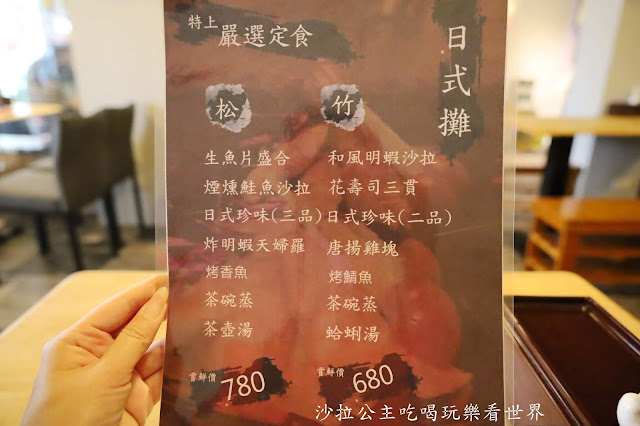 日式攤
特上
嚴選定食
松
生魚片盛合
煙燻鮭魚沙拉
日式珍味(三品)
炸明蝦天婦羅
烤香魚
茶碗蒸
茶壺湯
嘗鮮價
780
竹
和風明蝦沙拉
花壽司三貫
日式珍味(二品)
唐揚雞塊
烤鯖魚
茶碗蒸
蛤蜊湯
嘗鮮價
680
沙拉公主吃喝玩樂看世界